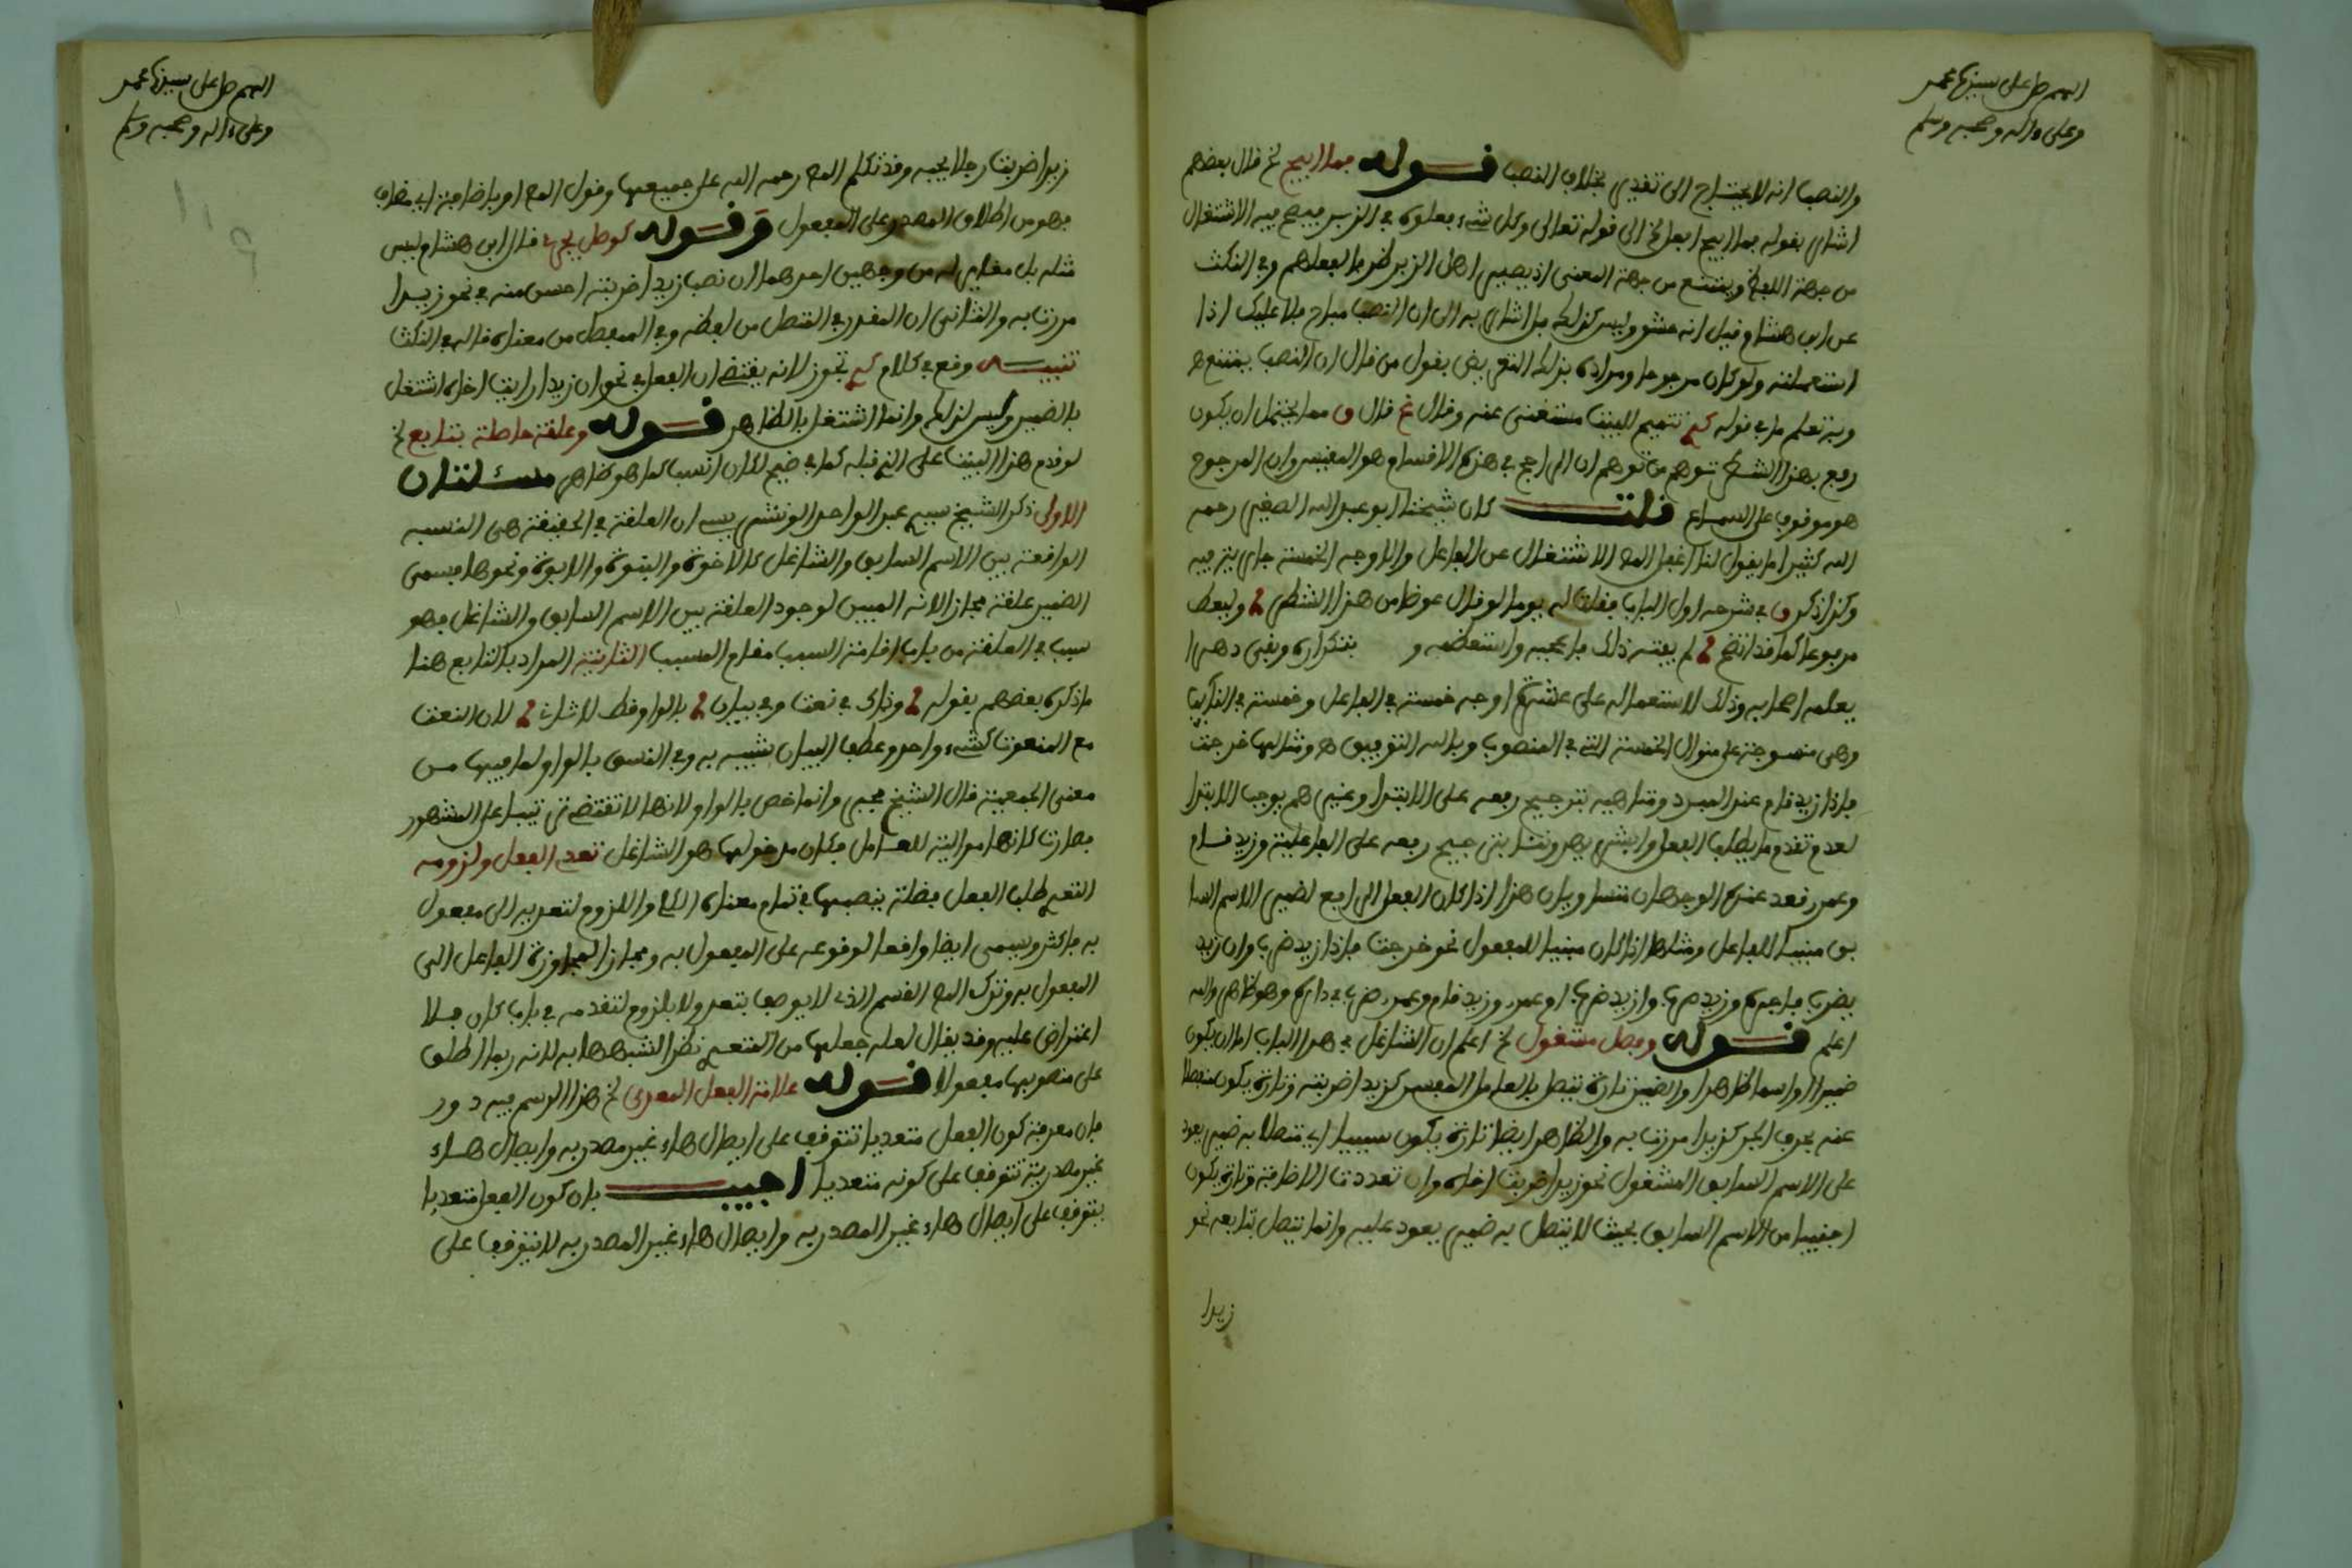 اللهم صل على سيدنا محمد
وعلى ءاله وصحبه وسلم
والنصب انه لا يحتاج الى تقدير بخلاف النصب قوله فما ابيح لخ قال بعضهم
اشار بقوله فما ابيح افعل لخ الى قوله تعالى وكل شيء فعلوه في الزبر فيصح فيه الاشتغال
من جهة اللفظ ويمتنع من جهة المعنى اذ يصير اهل الزبر ظرفا لفعلهم وفي النكت
عن ابن هشام قيل انه حشو وليس كذلك بل اشار به الى ان النصب مباح فلا عليك اذا
استعملته ولو كان مرجوحا ومراده بذلك التعريض بقول من قال ان النصب يمتنع
وبه تعلم ما في قوله تتميم للبيت مستغنى عنه وقال قال ق مما يحتمل ان يكون
رفع بهذا الشطر توهم من توهم ان الراجح في هذه الاقسام هو المقيس وان المرجوح
هو موقوف على السماع قلت كان شيخنا ابو عبد الله الصغير رحمه
الله كثيرا ما يقول لنا اغفل المص الاشتغال عن الفاعل والاوجه الخمسة جارية فيه
وكذا ذكر ق في شرحه اول الباب فقلت له يوما لو قال عوضا من هذا الشطر ولفظ
مرفوعا كما قد اتضح لم يفته ذلك فاعجبه واستعظمه و بتكراره وبقي دهرا
يعلمه اصحابه وذلك لاستعماله على عشرة اوجه خمسة في الفاعل وخمسة في النائب
وهي منسوجة على منوال الخمسة التي في المنصوب وبالله التوفيق ومثالها خرجت
فاذا زيد قام عند المبرد ومتابعيه بترجيح رفعه على الابتداء وغيرهم يوجب الابتدا
لعدم تقدم ما يطلب الفعل وابشر يهدوننا بترجيح رفعه على الفاعلية وزيد قام
وعمرو قعد عنده الوجهان متساويان هذا اذا كان الفعل الرافع لضمير الاسم السا
بق مبنيا للفاعل ومثلها اذا كان مبنيا للمفعول نحو خرجت فاذا زيد ضرب وان زيد
يضرب فاعجبه وزيد ضرب وازيد ضرب او عمرو وزيد قام وعمرو ضرب في داره وهو ظاهر والله
اعلم قوله وفصل مشغول لخ اعلم ان الشاغل في هذا الباب اما ان يكون
ضميرا او اسما ظاهرا والضمير تارة يتصل بالعامل المفسر كزيدا ضربته وتارة يكون منفصلا
عنه بحرف الجر كزيدا مررت به والظاهر ايضا تارة يكون سببيا اي متصلا به ضمير يعود
على الاسم السابق المشغول نحو زيدا ضربت اخاه وان تعددت الاضافة وتارة يكون
اجنبيا من الاسم السابق بحيث لا يتصل به ضمير يعود عليه وانما يتصل بتابعه نحو
زيدا
اللهم صل على سيدنا محمد
وعلى ءاله وصحبه وسلم
زيدا ضربت رجلا يحبه وقد تكلم المص رحمه الله على جميعها وقول المص او باضافة اي مضاف
فهو من اطلاق المصدر على المفعول وقوله كوصل يجري قال ابن هشام ليس
مثله بل مغاير له من وجهين احدهما ان نصب زيدا ضربته احسن منه في نحو زيدا
مررت به والثاني ان المقدر في المتصل من لفظه وفي المنفصل من معناه قاله في النكت
تنبيه وقع في كلام تجوز لانه يقتضي ان الفعل في نحو ان زيدا رايت اخاه اشتغل
بالضمير وليس كذلك وانما اشتغل بالظاهر قوله وعلقة حاصلة بتابع لخ
لو قدم هذا البيت على الذي قبله كما في ضيح لكان انسب كما هو ظاهر مسئلتان
الاولى ذكر الشيخ سيدي عبد الواحد الونشريسي ان العلقة في الحقيقة هي النسبة
الواقعة بين الاسم السابق والشاغل كالاخوة والبنوة والابوة ونحوها فيسمى
الضمير علقة مجازا لانه المبين لوجود العلقة بين الاسم السابق والشاغل فهو
سبب في العلقة من باب اقامة السبب مقام المسبب الثانية المراد بالتابع هنا
ما ذكره بعضهم بقوله وذاك في نعت وفي بيان بالواو فقط للاشارة لان النعت
مع المنعوت كشيء واحد وعطف البيان شبيه به وفي النسق بالواو لما فيها من
معنى الجمعية قال الشيخ يحيى وانما خص بالواو لانها لا تقتضي ترتيبا على المشهور
فصارت كانها موالية للعامل فكان مدخولها هو الشاغل تعدي الفعل ولزومه
التعدي طلب الفعل فضلة ينصبها في تمام معناه الخ واللزوم لتعديه الى مفعول
به فاكثر ويسمى ايضا واقعا لوقوعه على المفعول به ومجازا لمجاوزة الفاعل الى
المفعول به وترك المص القسم الذي لا يوصف بتعد ولا بلزوم لتقدمه في باب كان فلا
اعتراض عليه وقد يقال لعله جعلها من المتعدي نظرا لشبهها به لانه ربما اطلق
على منصوبها مفعولا قوله علامة الفعل المعدى لخ هذا الرسم فيه دور
فان معرفة كون الفعل متعديا تتوقف على ايصال هاء غير مصدر به وايصال هاء
غير مصدرية تتوقف على كونه متعديا اجيب بان كون الفعل متعديا
يتوقف على ايصال هاء غير المصدر به وايصال هاء غير المصدر به لا يتوقف على